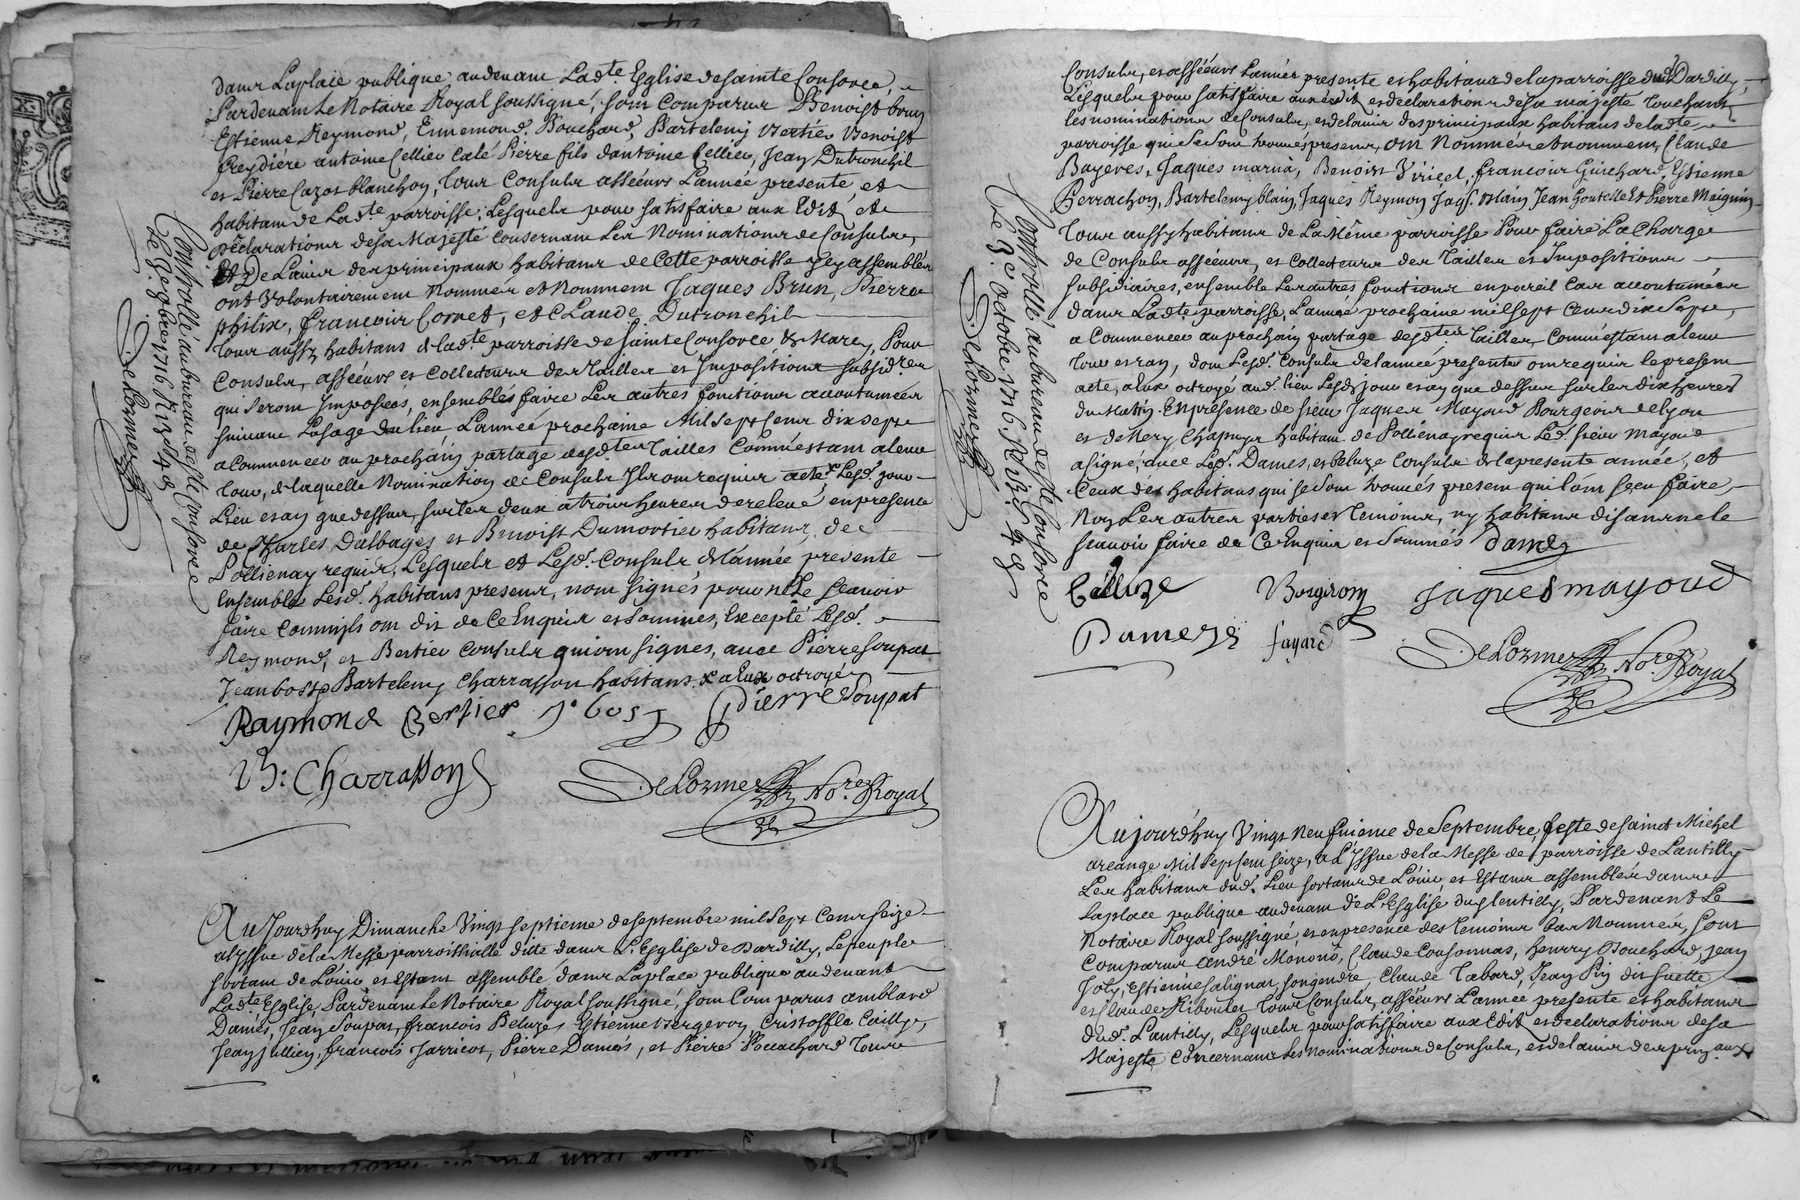 dans Laplace publique audevant Lad.te Esglise de Sainte Consorce,
Pardevant Le Notaire Royal soussigné, sont Comparus Benoist brun
Estienne Reymond, Ennemond Bouchard, Bartelemy Bertier Benoist
freydiere antoine Cellier Calé Pierre fils dantoine Cellier, Jean Dutronchil
et Pierre Cazot blanchon, tous Consuls asséeurs Lannée presente et
habitans de Lad.te parroisse, Lesquels pour satisfaire aux Edit et
Declarations desa Majesté Consernant Les Nominations de Consuls,
Et De Lavis des principaux habitans de Cette parroisse Icy assemblés
ont volontairement Nommés et Nomment Jaques Brun, Pierre
philix, francois Cornet, et CLaude Dutronchil
tous aussy habitans de Lad.te parroisse de Sainte Consorce & Marcy, Pour
Consuls, asséeurs et Collecteurs des Tailles et Impositions subsid.res
qui seront Imposées, ensembles faire Les autres fonctions accoutumées
suivant Lusage du lieu Lannée prochaine Mil Sept Cent dix sept
a Commencer au prochain partage desd.tes Tailles Comme estant aleur
tour, de laquelle Nomination de Consuls Ils ont requis acte x Lesd. jour
Lieu et an que dessus, sur les deux a trois heures de relevé en presence
de Charles Dalbages et Benoist Dumortier habitans de
Pollienay requis, Lesquels et Lesd. Consuls de Lannée presente
Ensemble Lesd. habitans presens, nont signés pour ne Le scavoir
faire Comm'ils ont dit de Ce Enquis et sommés, Excepté Lesd.
Reymond, et Bertier Consuls qui ont signés, avec Pierre Soupat
Jean bost & Bartelemy Charrasson habitans x a Eux octroyé
Raymond Bertier J. bost Pierre Soupat
B: Charrasson
DeLorme No.re Royal
Controllé au bureau de Ste Consorce
DeLorme
Au Jourdhuy Dimanche Vingt septieme de septembre mil Sept Cent seize
a lyssue de la Messe parroissialle ditte dans L'Esglise de Dardilly, Le peuple
sortant de Loüir et Estant assemblé dans Laplace publique audevant
Lad.te Esglise, Pardevant Le Notaire Royal soussigné, sont Comparus amblard
Damés, Jean Soupat, francois Beluze, Estienne Vergeron, Cristoffle Cailly,
Jean Jullien, francois Jarricot, Pierre Damés, et Pierre Bouachard tous
Consuls, et asséeurs Lannée presente et habitans de la parroisse dud. Dardilly,
Lesquels pour satisfaire aux édit et declarations de sa majesté touchant
les nominations de Consuls, et de lavis des principaux habitans de lad.te
parroisse qui se sont trouvés presens, ont Nommés et nomment, Claude
Bayeres, Jaques maria, Benoist Viricel, francois Guichard, Estienne
Perrachon, Bartelemy blain, Jaques Reymon Jaqs. blain Jean Goutelle Et Pierre Maignin
tous aussy habitans de La Même parroisse Pour faire La Charge
de Consuls asséeurs, et Collecteurs des Tailles et Impositions
subsidiaires, ensemble Les autres fonctions en pareil Cas accoutumées
dans Lad.te parroisse, Lannée prochaine mil sept Cent dix sept,
a Commencer au prochain partage desd.tes Tailles, Comme estant a leur
tour et rang, dont Lesd. Consuls de lannée presente ont requis le present
acte, a Eux octroyé aud. lieu Lesd. jour et an que dessus sur les dix heures
du Matin. En presence de sieur Jaques Mayoud Bourgeois de lyon
et de Mery Chapuys habitant de Pollenay requis Led. sieur Mayoud
a signé, avec Lesd. Dames, et beluze Consuls de la presente année, et
Ceux des habitans qui se sont trouvés presens qui l'ont sçeu faire,
Non Les autres parties et temoins, ny habitans disans ne le
scavoir faire de Ce Enquis et sommés Damés
belluze Vergiron Jaques mayoud
Dameze fayard
DeLorme No.re Royal
Controllé au bureau de Ste Consorce
DeLorme
Aujourdhuy Vingt Neufuieme de Septembre, feste de Saint Michel
arcange Mil Sept Cent seize, a L'Issue de la Messe de parroisse de Lantilly
Les habitans dud. Lieu sortans de Loüir, et Estans assemblés dans
Laplace publique audevant de L'Esglise du Lentilly, Pardevant Le
Notaire Royal soussigné, et en presence des temoins bas Nommés, sont
Comparus andré Monono, Claude Consonnas, henry Bouchard, Jean
Joly, Estienne salignat son gendre, Claude Tabard, Jean Piy dit suelle
et Claude Riboulet, tous Consuls, asséeurs Lannée presente et habitans
dud. Lantilly, Lesquels pour satisfaire aux Edit et declarations de sa
Majesté Concernant Les nominations de Consuls, et de lavis des prin.aux